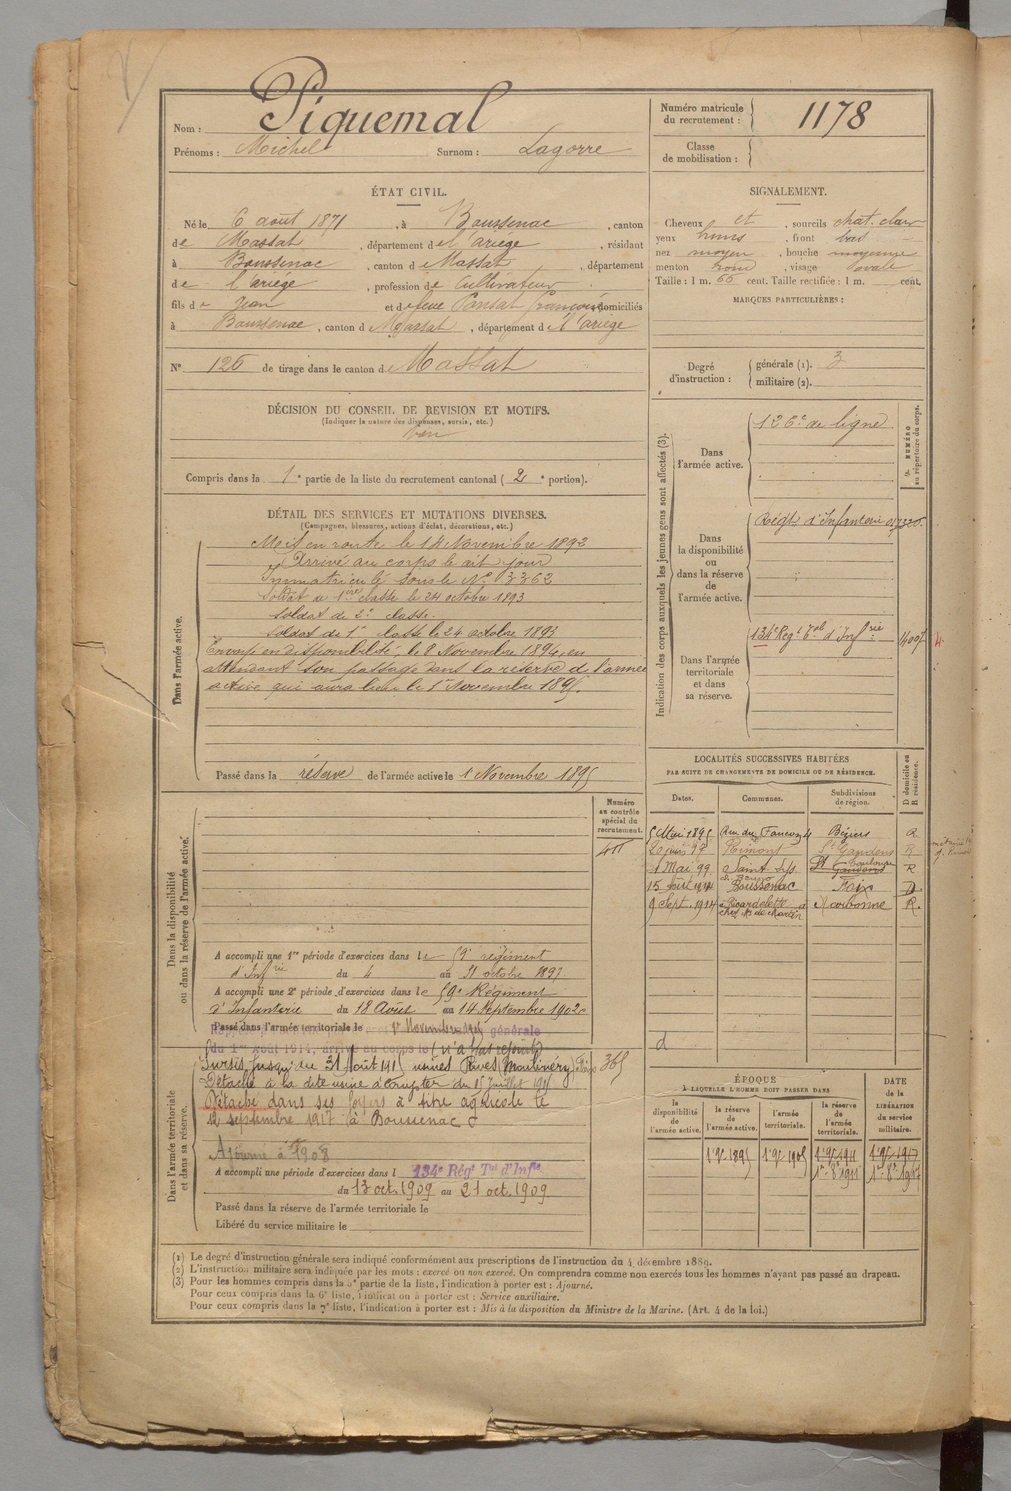 Nom : Piquemal
Prénoms : Michel Surnom : Lagorre
Numéro matricule du recrutement : 1178
Classe de mobilisation :
ÉTAT CIVIL.
Né le 6 août 1871, à Boussenac, canton
de Massat, département de l'ariège, résidant
à Boussenac, canton de Massat, département
de l'ariège, profession de Cultivateur
fils de Jean et de feue Pansat françoise domiciliés
à Boussenac, canton de Massat, département de l'ariège
N° 126 de tirage dans le canton de Massat
SIGNALEMENT.
Cheveux et, sourcils chat. clair
yeux, front bas
nez moyen, bouche moyenne
menton rond, visage ovale
Taille : 1 m. 66 cent. Taille rectifiée : 1 m. cent.
MARQUES PARTICULIÈRES :
Degré d'instruction : générale (1). 3
militaire (2).
DÉCISION DU CONSEIL DE REVISION ET MOTIFS.
(Indiquer la nature des dispenses, sursis, etc.)
bon
Compris dans la 1e partie de la liste du recrutement cantonal (2e portion).
DÉTAIL DES SERVICES ET MUTATIONS DIVERSES.
(Campagnes, blessures, actions d'éclat, décorations, etc.)
Dans l'armée active.
Mis en route le 14 Novembre 1892
Arrivé au corps le dit jour
Immatriculé sous le N° 3362
Soldat de 1ere classe le 24 octobre 1893
Soldat de 2e classe.
Soldat de 1e classe le 24 octobre 1893
Envoyé en disponibilité le 8 Novembre 1894, en
attendant son passage dans la réserve de l'armée
active qui aura lieu le 1er Novembre 1895.
Passé dans la réserve de l'armée active le 1 Novembre 1895
Indication des corps auxquels les jeunes gens sont affectés (3).
NUMÉRO au répertoire du corps.
Dans l'armée active.
126e de ligne
Dans la disponibilité ou dans la réserve de l'armée active.
Régt d'Infanterie
Dans l'armée territoriale et dans sa réserve.
134e Régt Tal d'Infrie
LOCALITÉS SUCCESSIVES HABITÉES
PAR SUITE DE CHANGEMENTS DE DOMICILE OU DE RÉSIDENCE.
Dates. Communes. Subdivisions de région. D domicile ou R résidence.
5 Mai 1895 Rue du Faucon 4 Béziers R
20 juin 97 Rimont St Gaudens R
1 Mai 99 Saint Lys St Gaudens Toulouse R
15 Août 1914 Boussenac Foix D
9 Sept. 1914 Ricardelle chez Mr de Martin Narbonne R.
Numéro au contrôle spécial du recrutement.
Dans la disponibilité ou dans la réserve de l'armée active.
A accompli une 1re période d'exercices dans le 59e régiment
d'Infrie du 4 au 31 octobre 1897
A accompli une 2e période d'exercices dans le 59e Régiment
d'Infanterie du 18 Août au 14 Septembre 1902
Passé dans l'armée territoriale le 1r Novembre 1905
Dans l'armée territoriale et dans sa réserve.
du 1er août 1914, arrivé au corps le (n'a pas rejoint)
Sursis jusqu'au 31 Août 1915 usines Rives (Moulinéry) 365
Détaché à la dite usine à compter du 15 juillet 1915
Détaché dans ses foyers à titre agricole le
12 septembre 1917 (à Boussenac)
Ajourné à 1908
A accompli une période d'exercices dans l 134e Régt Tal d'Infie
du 13 oct. 1909 au 21 oct. 1909
Passé dans la réserve de l'armée territoriale le
Libéré du service militaire le
ÉPOQUE
À LAQUELLE L'HOMME DOIT PASSER DANS
la disponibilité de l'armée active. la réserve de l'armée active. l'armée territoriale. la réserve de l'armée territoriale.
DATE de la LIBÉRATION du service militaire.
1r 9e 1895 1r 9e 1905 1r 9e 1911 1r 9e 1917
1r 8e 1911 1r 8e 1917
(1) Le degré d'instruction générale sera indiqué conformément aux prescriptions de l'instruction du 4 décembre 1889.
(2) L'instruction militaire sera indiquée par les mots : exercé ou non exercé. On comprendra comme non exercés tous les hommes n'ayant pas passé au drapeau.
(3) Pour les hommes compris dans la 5e partie de la liste, l'indication à porter est : Ajourné.
Pour ceux compris dans la 6e liste, l'indication à porter est : Service auxiliaire.
Pour ceux compris dans la 7e liste, l'indication à porter est : Mis à la disposition du Ministre de la Marine. (Art. 4 de la loi.)